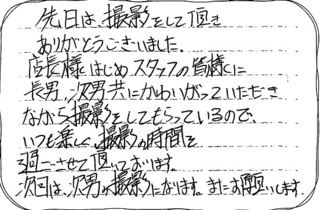 先日は、撮影をして頂き
ありがとうございました。
店長様はじめスタッフの皆様に
長男、次男共にかわいがっていただき
ながら撮影をしてもらっているので、
いつも楽しく、撮影の時間を
過ごさせて頂いております。
次回は、次男の撮影になります。またお願いします。